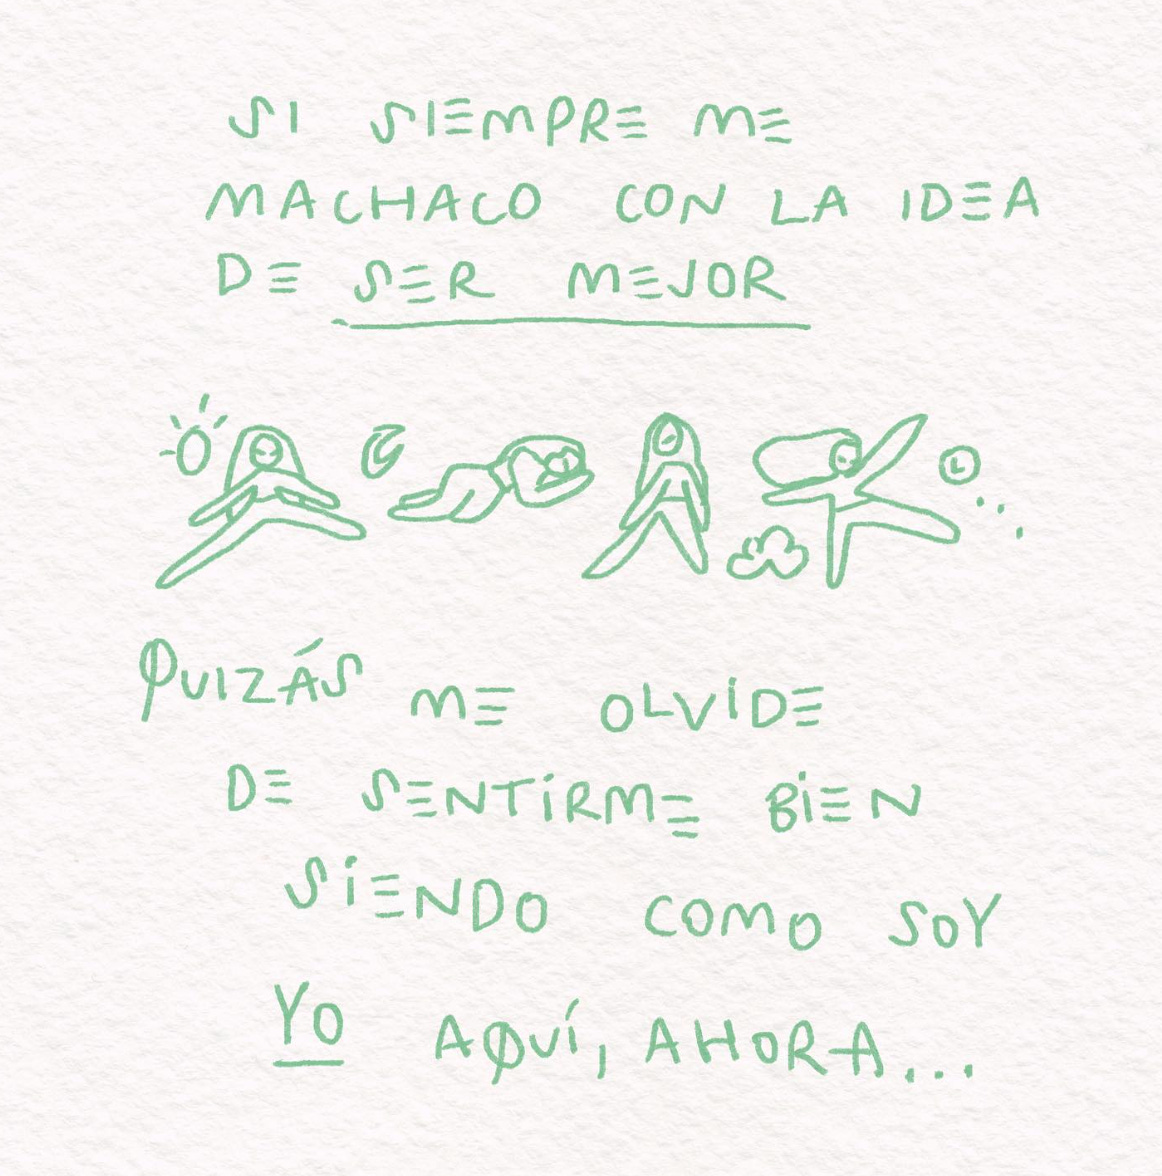 SI SIEMPRE ME
MACHACO CON LA IDEA
DE SER MEJOR
QUIZÁS ME OLVIDE
DE SENTIRME BIEN
SIENDO COMO SOY
YO AQUÍ, AHORA...